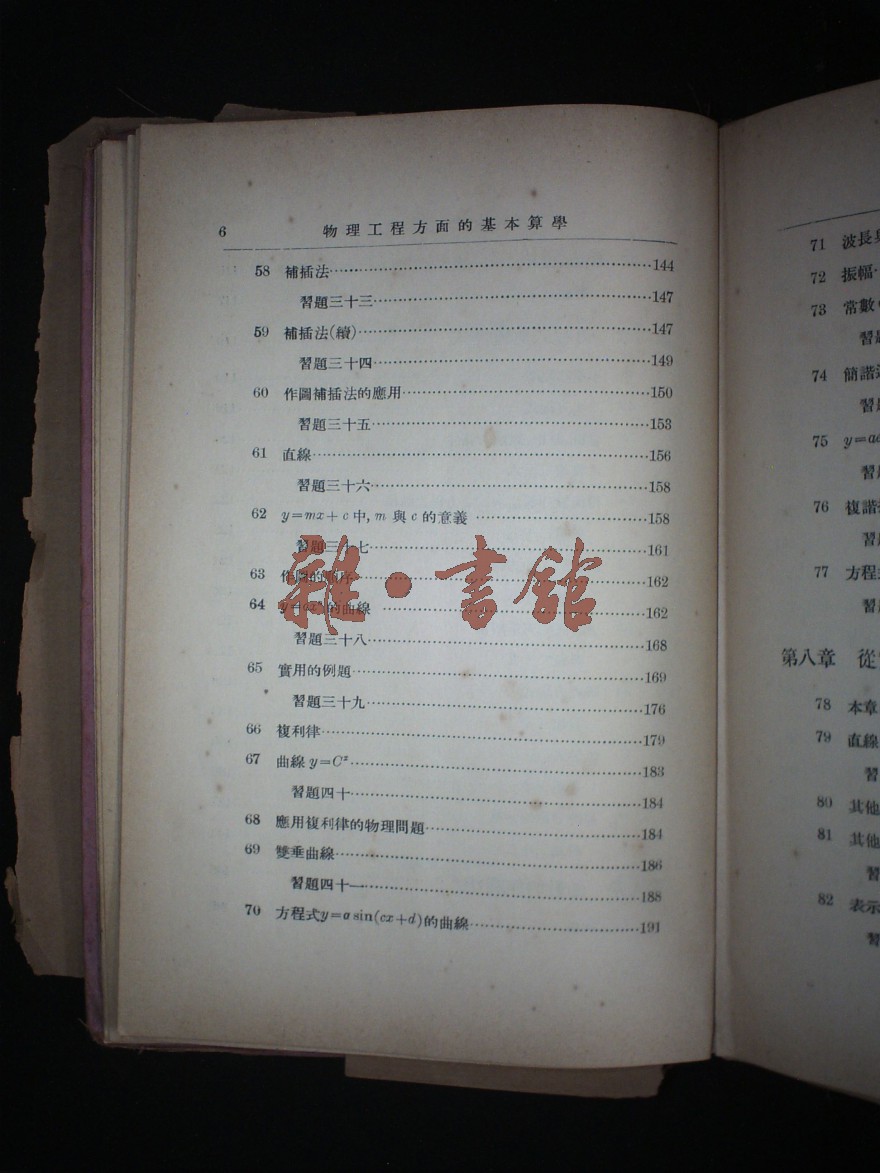 6 物理工程方面的基本算學
58 補插法……144
習題三十三……147
59 補插法(續)……147
習題三十四……149
60 作圖補插法的應用……150
習題三十五……153
61 直線……156
習題三十六……158
62 y=mx+c中,m與c的意義……158
習題三十七……161
63 作圖的順序……162
64 y=axⁿ的曲線……162
習題三十八……168
65 實用的例題……169
習題三十九……176
66 複利律……179
67 曲線y=Cˣ……183
習題四十……184
68 應用複利律的物理問題……184
69 雙垂曲線……186
習題四十一……188
70 方程式y=a sin(cx+d)的曲線……191
雜·書館
71 波長
72 振幅
73 常數
習
74 簡諧
習
75 y=a
習
76 複諧
習
77 方程式
習
第八章 從
78 本章
79 直線
習
80 其他
81 其他
習
82 表示
習